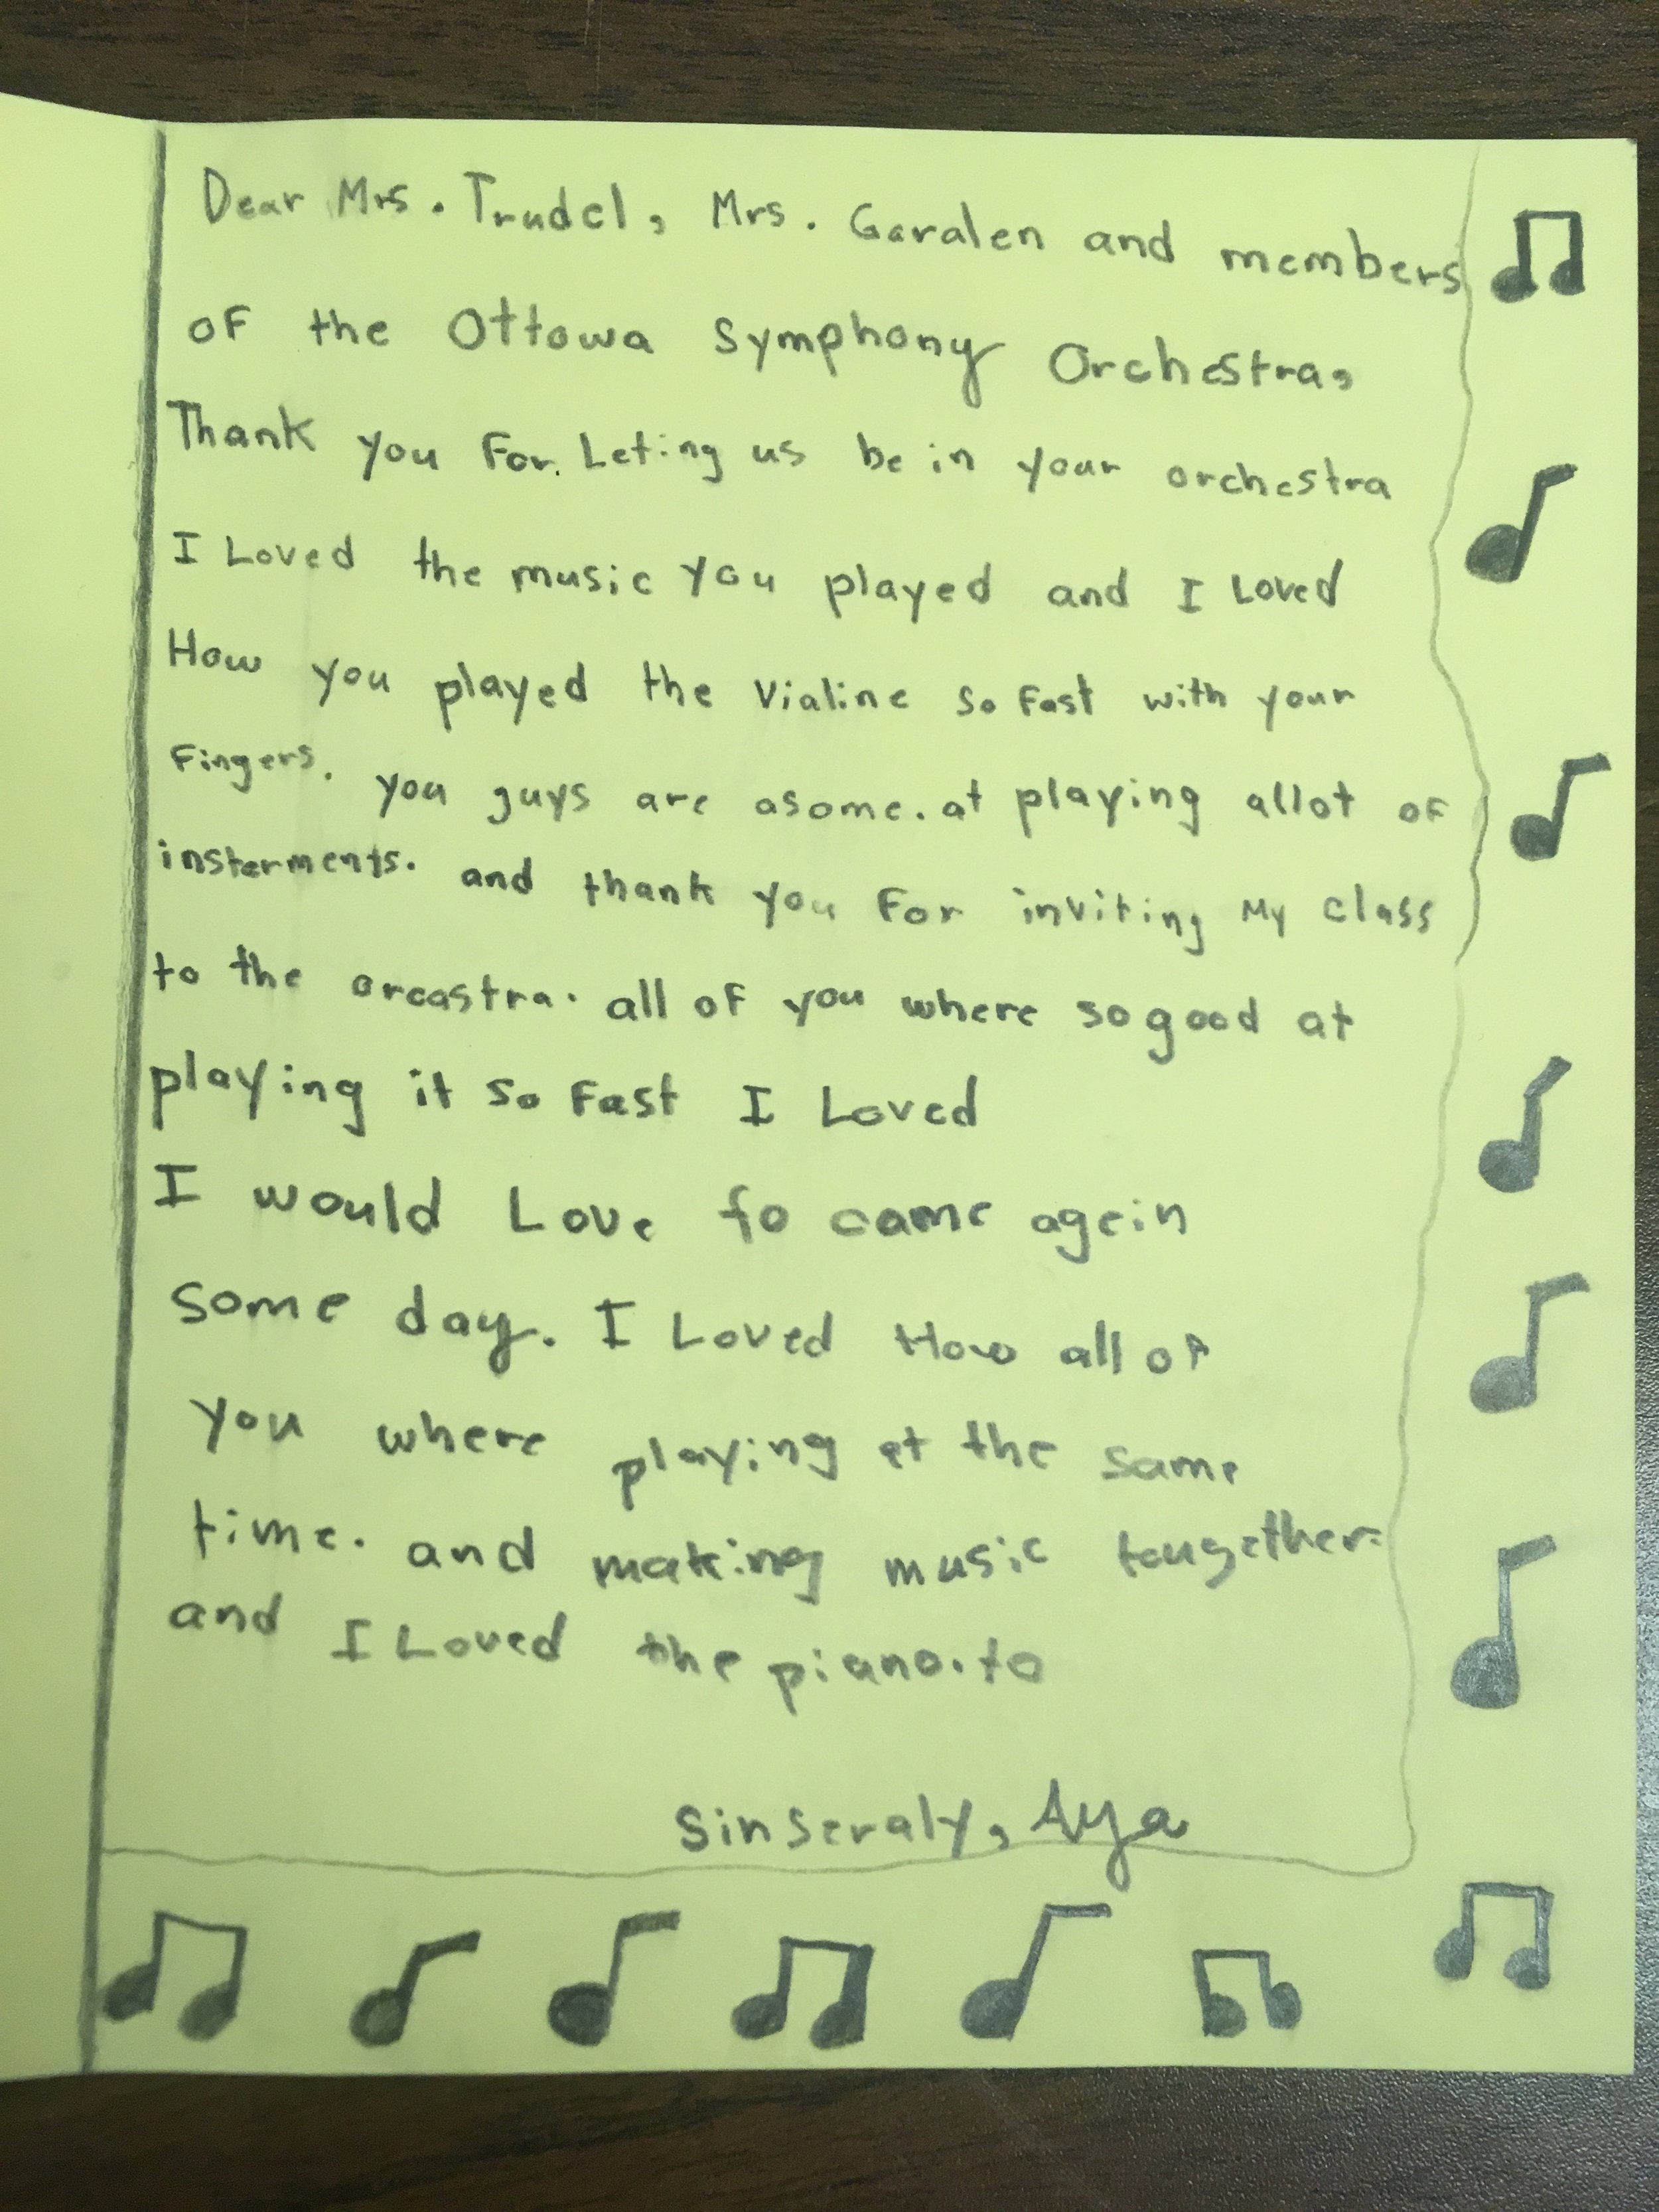 Dear Mrs. Trudel, Mrs. Garalen and members
of the Ottowa Symphony Orchestra,
Thank you For. Leting us be in your orchestra
I Loved the music you played and I Loved
How you played the Vialine So Fast with your
Fingers. you guys are asome. at playing allot of
insterments. and thank you For inviting My class
to the orcastra. all of you where so good at
playing it So Fast I Loved
I would Love to came agein
Some day. I Loved How all of
you where playing at the same
time. and making music tougether.
and I Loved the piano. to
Sinseraly, Aya